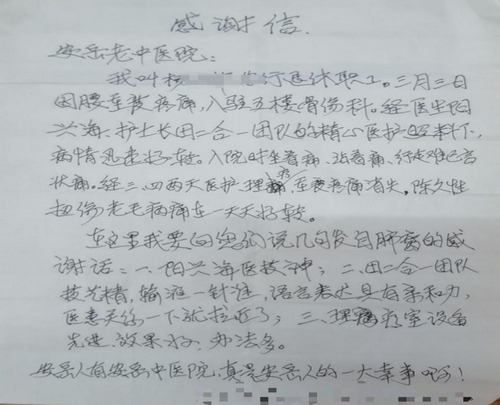 感谢信.
安岳老中医院:
我叫 行退休职工。三月三日
因腰车疼痛,入驻五楼骨伤科。经医生阳
兴海、护士长田二合一团队的精心医护照料下,
病情迅速好转。入院时坐着痛,站着痛,行走难已言
状痛。经三、四两天医护、理疗,车腰疼痛消失。除久性
扭伤老毛病痛在一天天好转。
在这里我要向您们说几句发自肺腑的感
谢话:一、阳兴海医技神;二、田二合一团队
技艺精,输液一针准,语言表达具有亲和力,
医患关系一下就拉近了;三、理疗室设备
先进、效果好、办法多。
安岳人有安岳中医院,真是安岳人的一大幸事啊!